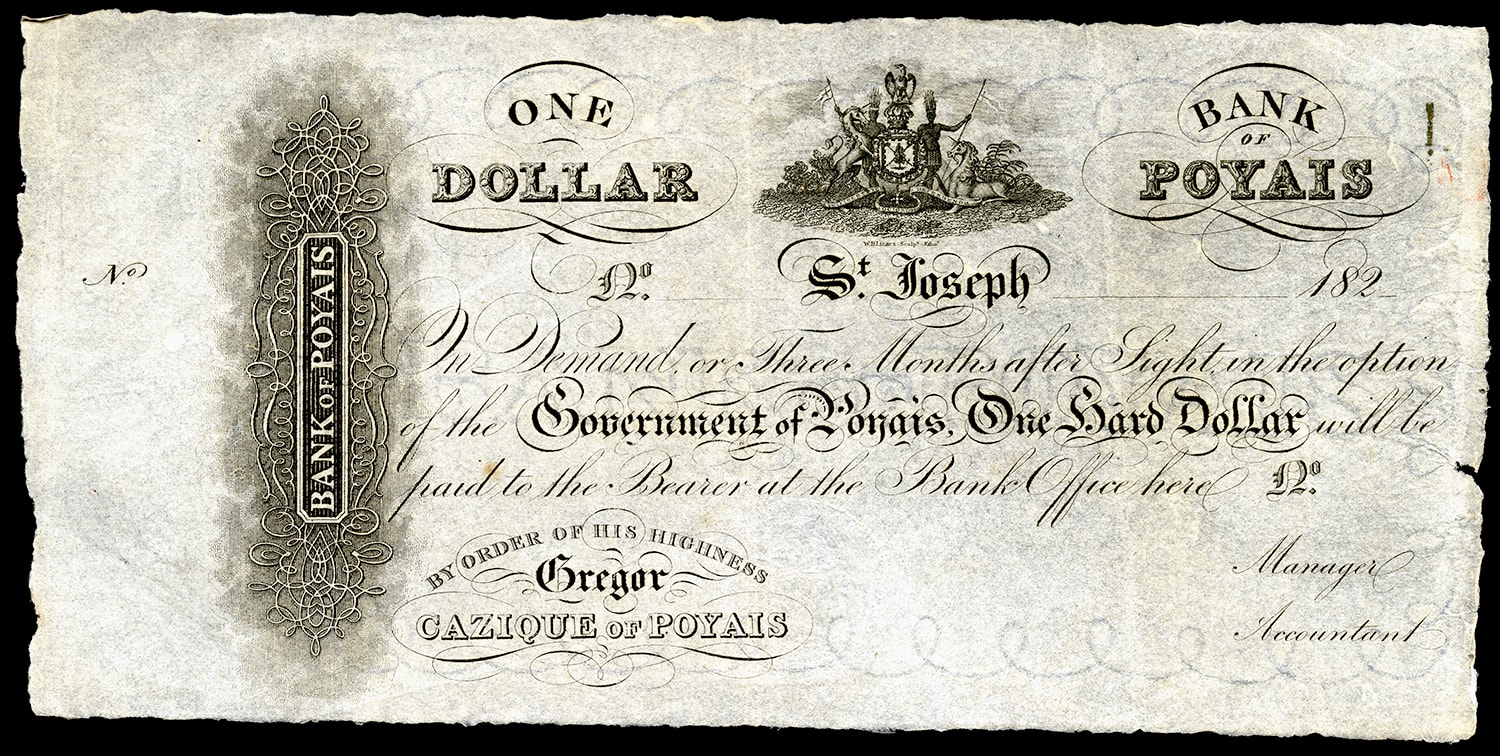 ONE
DOLLAR
BANK
OF
POYAIS
W.H.Lizars Sculpt. Edinr.
No.
No. St. Joseph 182
BANK OF POYAIS
On Demand, or Three Months after Sight in the option
of the Government of Poyais, One Hard Dollar will be
paid to the Bearer at the Bank Office here No.
BY ORDER OF HIS HIGHNESS
Gregor
CAZIQUE OF POYAIS
Manager
Accountant